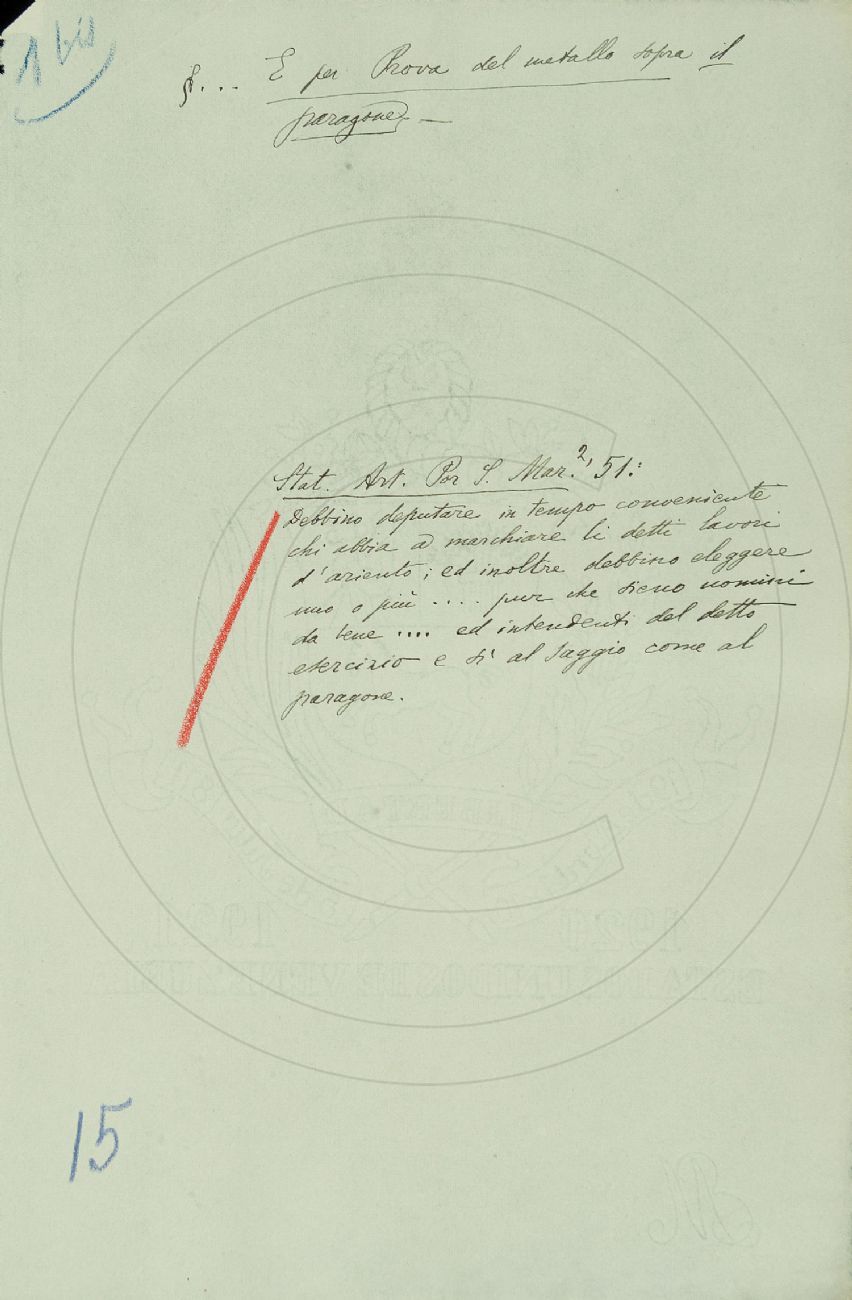 1 bis
§... E per Prova del metallo sopra il
paragone. —
Stat. Art. Por S. Mar. 2, 51:
Debbino deputare in tempo conveniente
chi abbia a marchiare li detti lavori
d'ariento; ed inoltre debbino eleggere
uno o più .... pur che sieno uomini
da bene .... ed intendenti del detto
esercizio e sì al saggio come al
paragone.
1920
1921
ESTADOS UNIDOS DE VENEZUELA
15